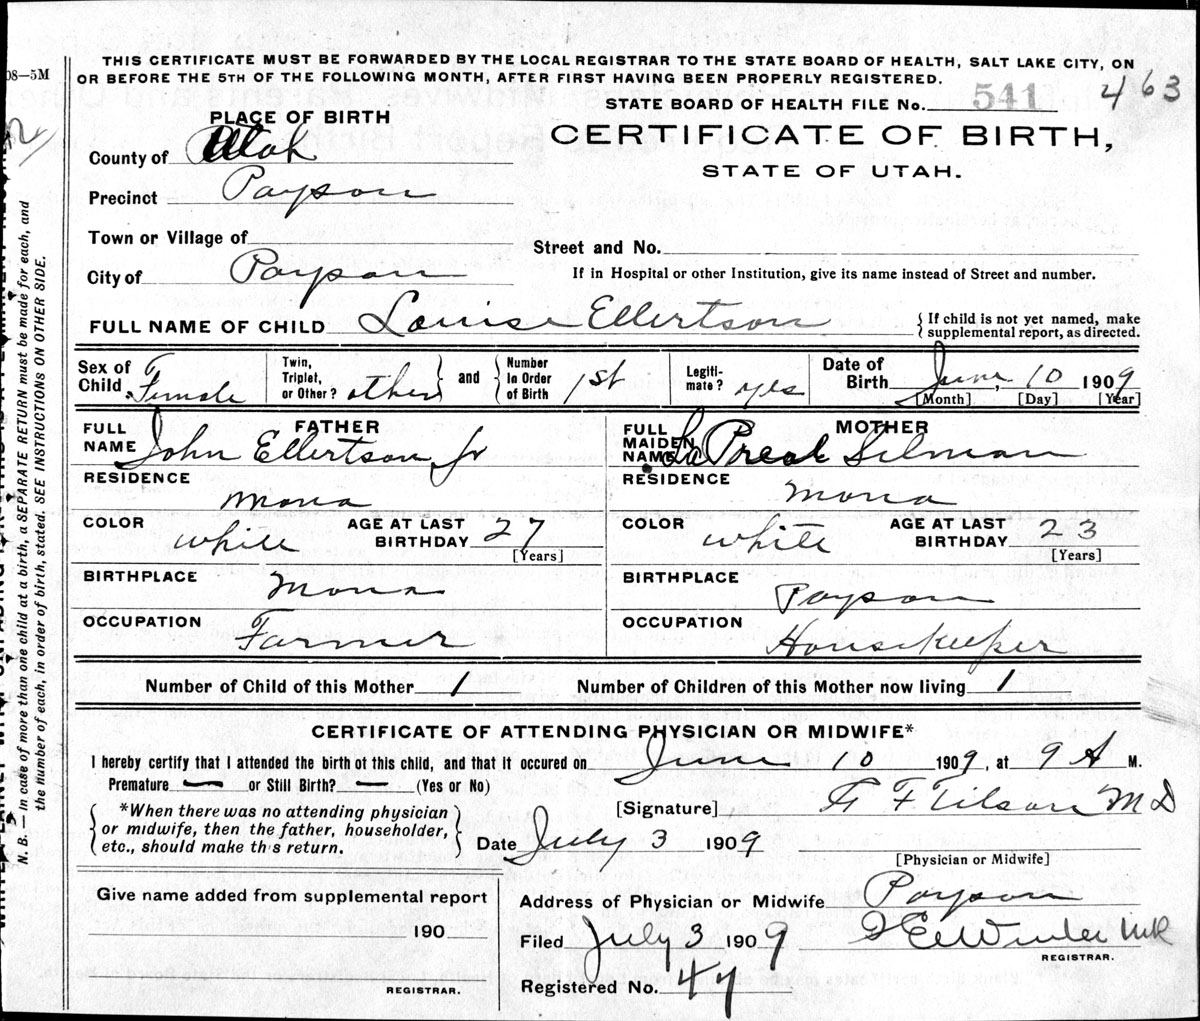 THIS CERTIFICATE MUST BE FORWARDED BY THE LOCAL REGISTRAR TO THE STATE BOARD OF HEALTH, SALT LAKE CITY, ON
OR BEFORE THE 5TH OF THE FOLLOWING MONTH, AFTER FIRST HAVING BEEN PROPERLY REGISTERED.
08—5M
STATE BOARD OF HEALTH FILE No. 541 463
PLACE OF BIRTH
CERTIFICATE OF BIRTH,
STATE OF UTAH.
County of Utah
Precinct Payson
Town or Village of
Street and No.
City of Payson
If in Hospital or other Institution, give its name instead of Street and number.
FULL NAME OF CHILD Louise Ellertson
{If child is not yet named, make supplemental report, as directed.
Sex of Child Female
Twin, Triplet, or Other? other } and { Number in Order of Birth 1st
Legiti-mate? yes
Date of Birth June 10 1909
[Month] [Day] [Year]
FATHER
FULL NAME John Ellertson Jr
MOTHER
FULL MAIDEN NAME La Preal Selman
RESIDENCE Mona
RESIDENCE Mona
COLOR white AGE AT LAST BIRTHDAY 27 [Years]
COLOR white AGE AT LAST BIRTHDAY 23 [Years]
BIRTHPLACE Mona
BIRTHPLACE Payson
OCCUPATION Farmer
OCCUPATION Housekeeper
Number of Child of this Mother 1 Number of Children of this Mother now living 1
CERTIFICATE OF ATTENDING PHYSICIAN OR MIDWIFE*
I hereby certify that I attended the birth of this child, and that it occured on June 10 1909, at 9 A M.
Premature — or Still Birth? — (Yes or No)
[Signature] Tilson MD
{*When there was no attending physician
or midwife, then the father, householder,
etc., should make this return.}
Date July 3 1909
[Physician or Midwife]
Give name added from supplemental report
190
REGISTRAR.
Address of Physician or Midwife Payson
Filed July 3 1909
REGISTRAR.
Registered No. 47
N. B.—In case of more than one child at a birth, a SEPARATE RETURN must be made for each, and
the number of each, in order of birth, stated. SEE INSTRUCTIONS ON OTHER SIDE.